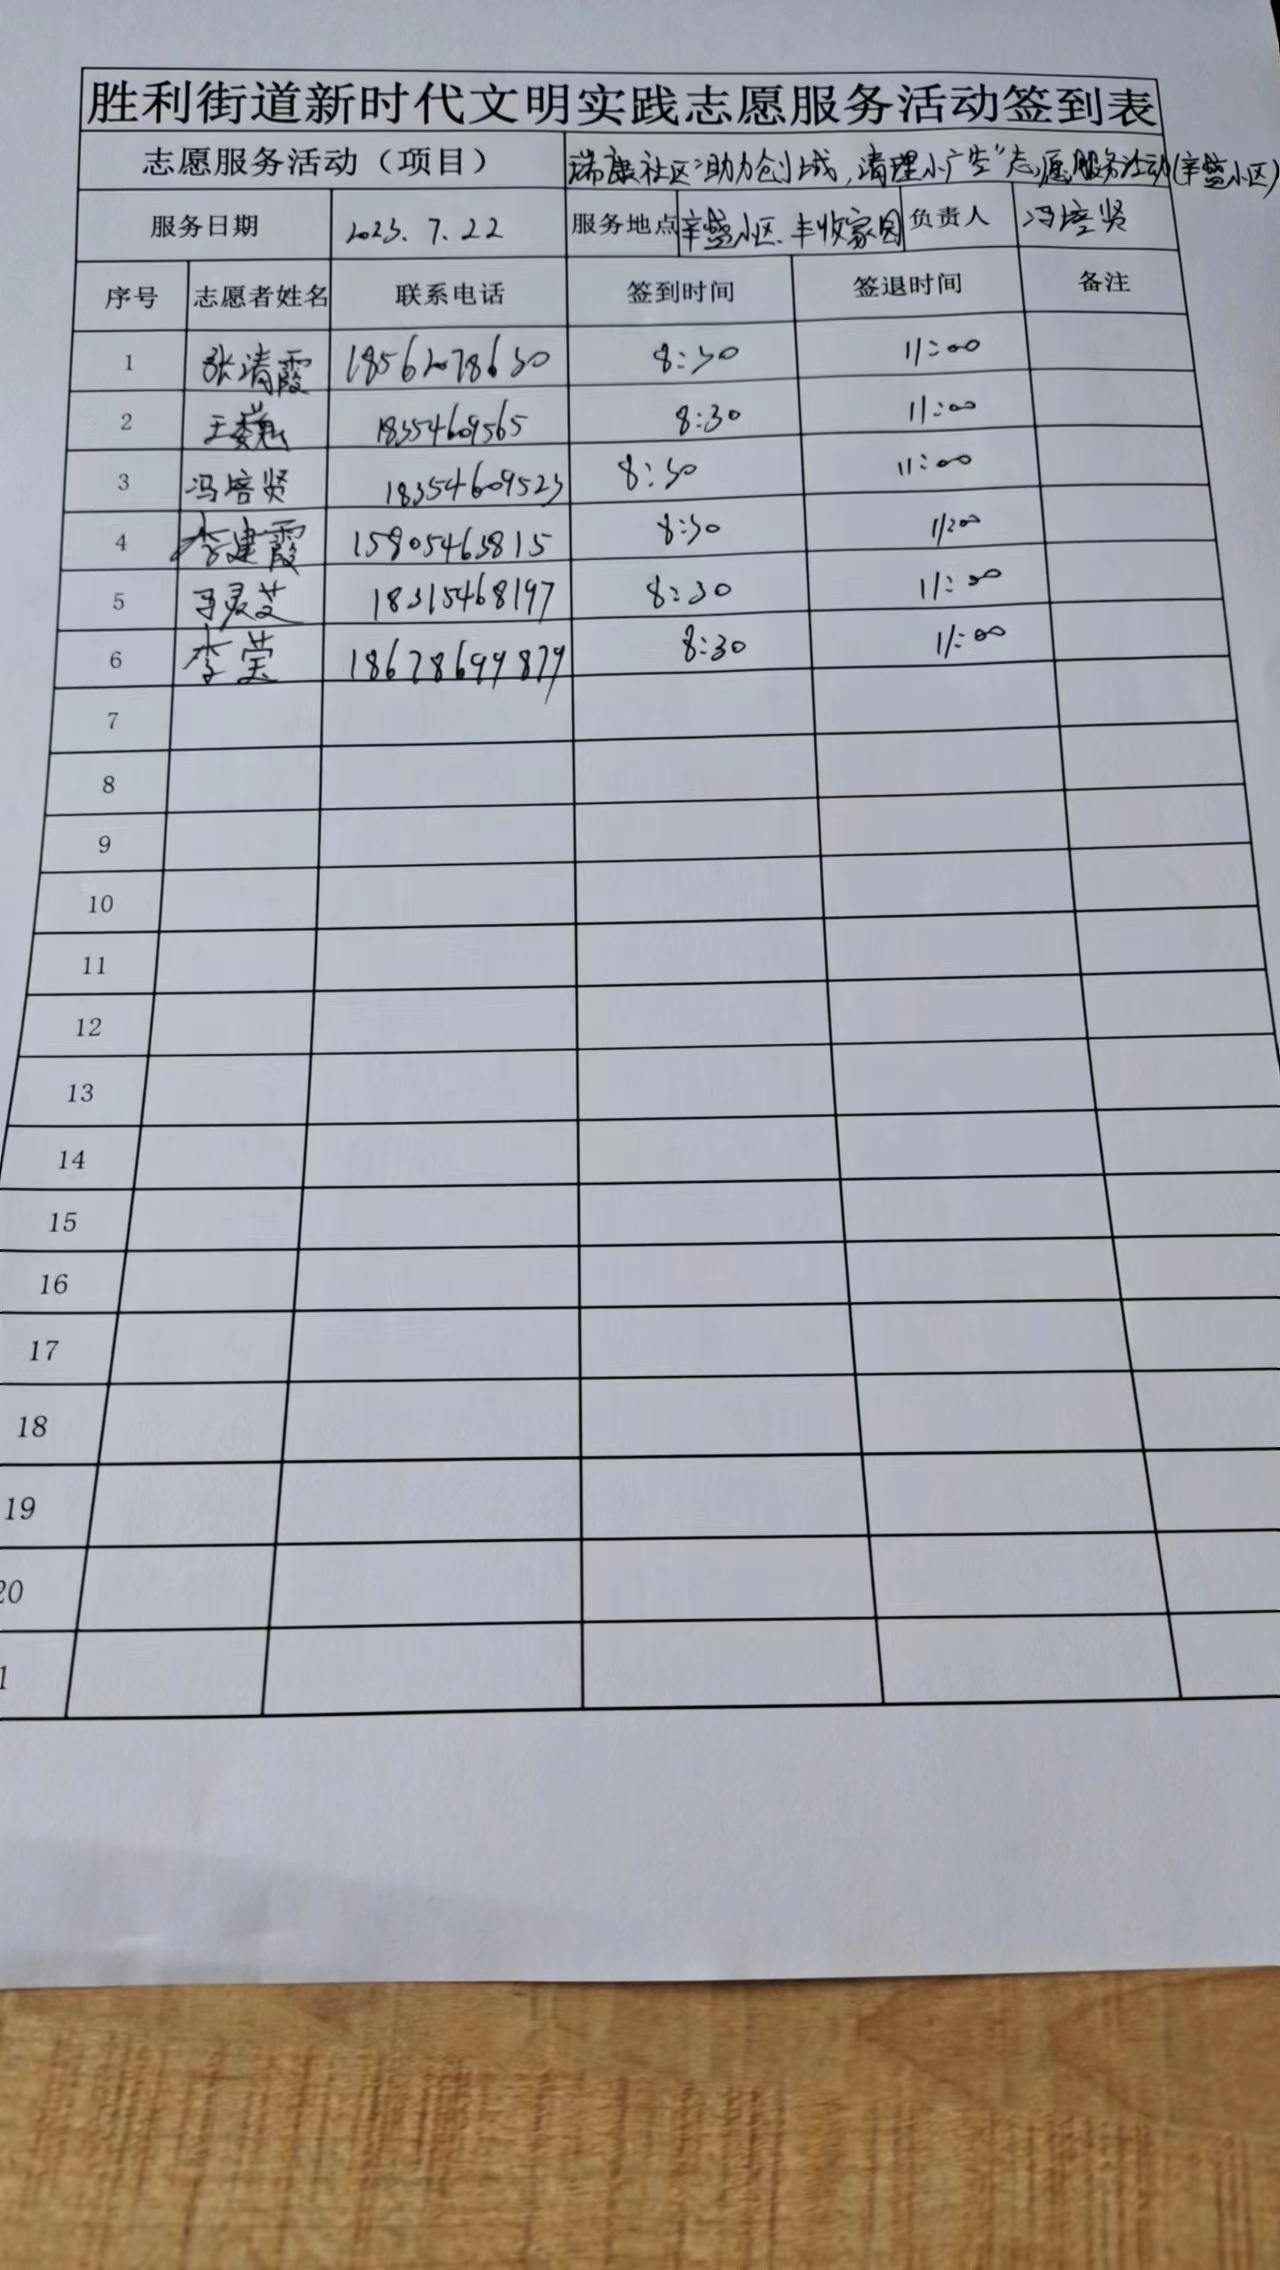 胜利街道新时代文明实践志愿服务活动签到表
志愿服务活动（项目） 瑞康社区"助力创城，清理小广告"志愿服务活动(辛盛小区)
服务日期 2023.7.22 服务地点 辛盛小区、丰收家园 负责人 冯培贤
序号 志愿者姓名 联系电话 签到时间 签退时间 备注
1 张清霞 18562078630 8:30 11:00
2 王巍 18354609565 8:30 11:00
3 冯培贤 18354609523 8:30 11:00
4 李建霞 15805463815 8:30 11:00
5 马灵芝 18315468197 8:30 11:00
6 李莹 18678699879 8:30 11:00
7
8
9
10
11
12
13
14
15
16
17
18
19
20
1